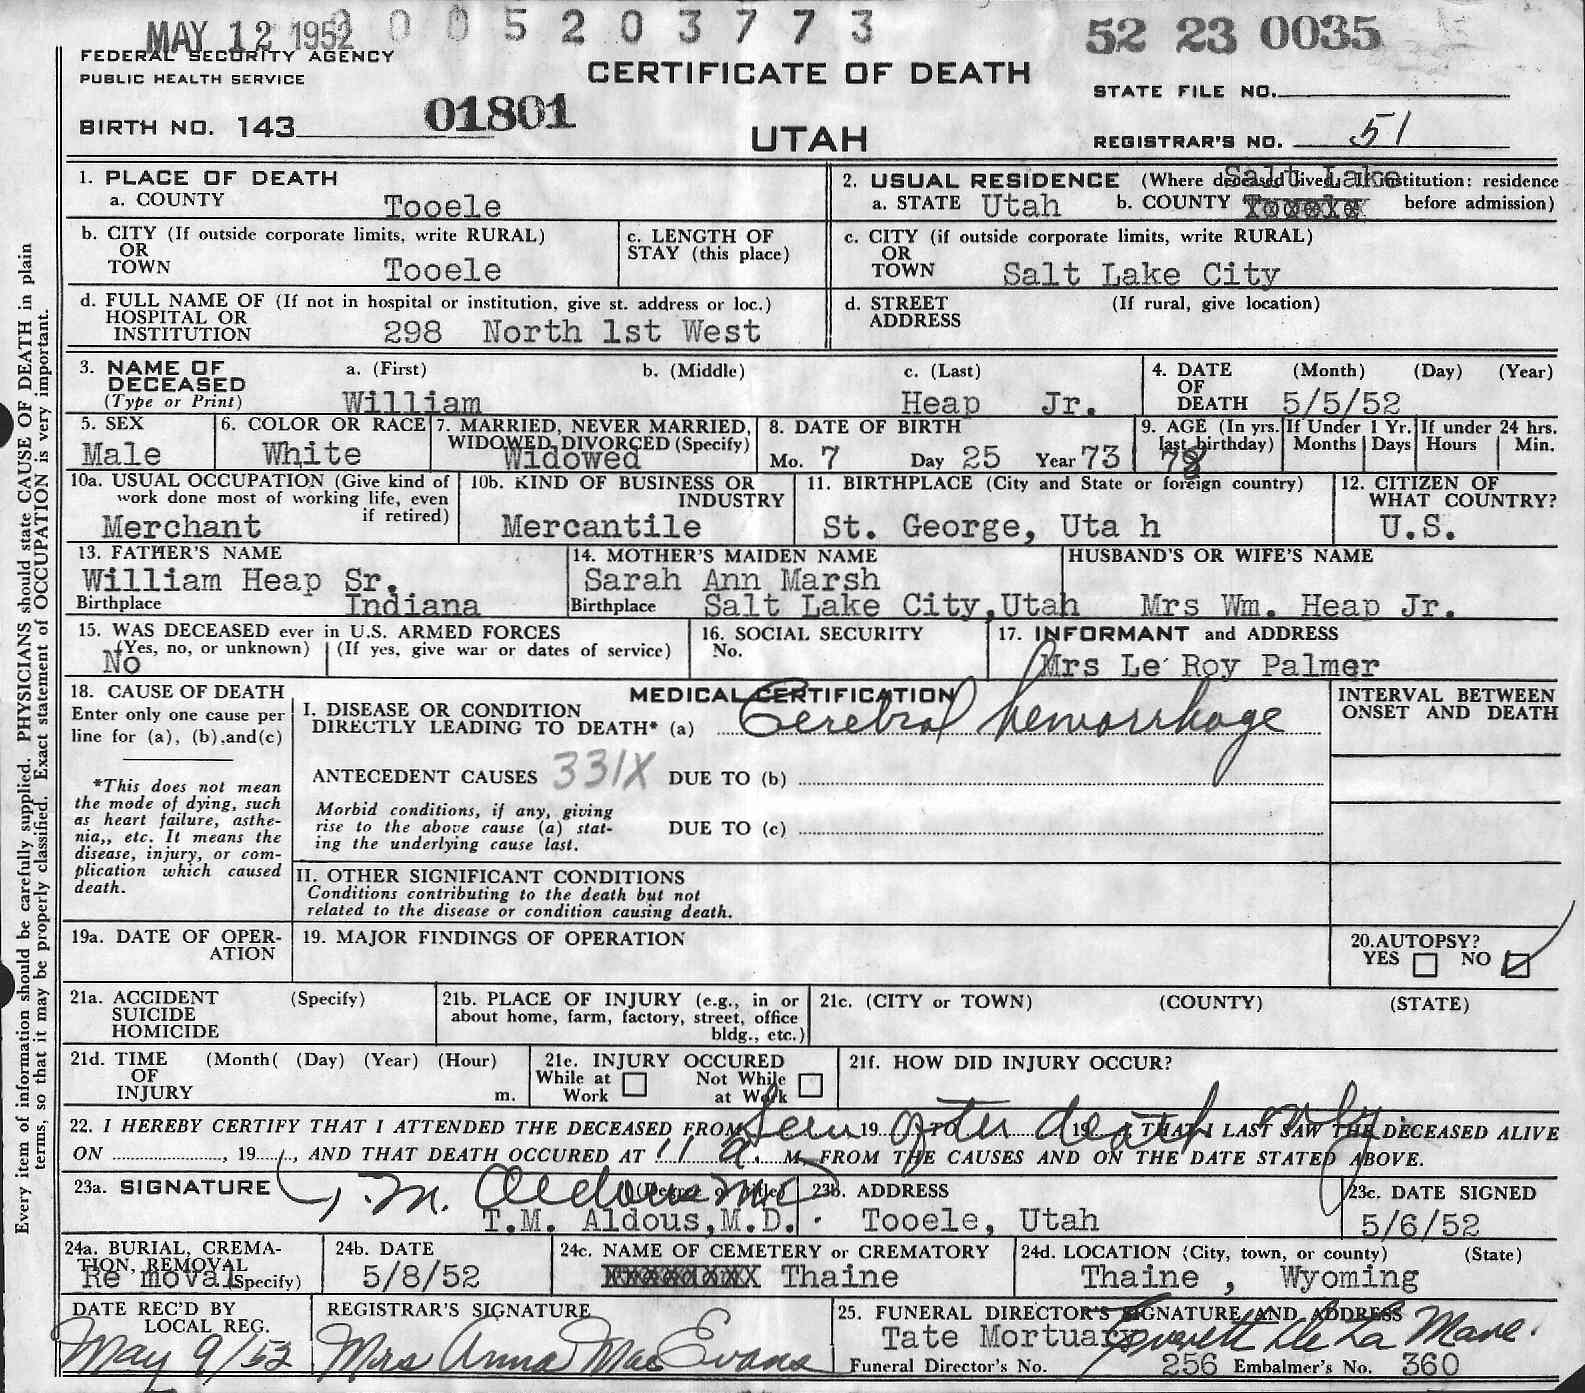 MAY 12 1952 0 0 5 2 0 3 7 7 3
52 23 0035
FEDERAL SECURITY AGENCY
PUBLIC HEALTH SERVICE
CERTIFICATE OF DEATH
STATE FILE NO.
BIRTH NO. 143 01801
UTAH
REGISTRAR'S NO. 51
1. PLACE OF DEATH
a. COUNTY Tooele
2. USUAL RESIDENCE (Where deceased lived. If institution: residence before admission)
a. STATE Utah b. COUNTY Salt Lake
b. CITY (If outside corporate limits, write RURAL)
OR
TOWN Tooele
c. LENGTH OF
STAY (this place)
c. CITY (if outside corporate limits, write RURAL)
OR
TOWN Salt Lake City
d. FULL NAME OF (If not in hospital or institution, give st. address or loc.)
HOSPITAL OR
INSTITUTION 298 North 1st West
d. STREET (If rural, give location)
ADDRESS
3. NAME OF DECEASED
(Type or Print)
a. (First) b. (Middle) c. (Last)
William Heap Jr.
4. DATE OF DEATH (Month) (Day) (Year)
5/5/52
5. SEX
Male
6. COLOR OR RACE
White
7. MARRIED, NEVER MARRIED,
WIDOWED, DIVORCED (Specify)
Widowed
8. DATE OF BIRTH
Mo. 7 Day 25 Year 73
9. AGE (In yrs. last birthday)
78
If Under 1 Yr.
Months Days
If under 24 hrs.
Hours Min.
10a. USUAL OCCUPATION (Give kind of
work done most of working life, even
if retired)
Merchant
10b. KIND OF BUSINESS OR
INDUSTRY
Mercantile
11. BIRTHPLACE (City and State or foreign country)
St. George, Uta h
12. CITIZEN OF
WHAT COUNTRY?
U.S.
13. FATHER'S NAME
William Heap Sr.
Birthplace Indiana
14. MOTHER'S MAIDEN NAME
Sarah Ann Marsh
Birthplace Salt Lake City,Utah
HUSBAND'S OR WIFE'S NAME
Mrs Wm. Heap Jr.
15. WAS DECEASED ever in U.S. ARMED FORCES
(Yes, no, or unknown) (If yes, give war or dates of service)
No
16. SOCIAL SECURITY
No.
17. INFORMANT and ADDRESS
Mrs Le Roy Palmer
18. CAUSE OF DEATH
Enter only one cause per
line for (a), (b),and(c)
*This does not mean
the mode of dying, such
as heart failure, asthe-
nia,, etc. It means the
disease, injury, or com-
plication which caused
death.
MEDICAL CERTIFICATION
I. DISEASE OR CONDITION
DIRECTLY LEADING TO DEATH* (a) Cerebral hemorrhage
ANTECEDENT CAUSES 331X DUE TO (b)
Morbid conditions, if any, giving
rise to the above cause (a) stat-
ing the underlying cause last.
DUE TO (c)
INTERVAL BETWEEN
ONSET AND DEATH
II. OTHER SIGNIFICANT CONDITIONS
Conditions contributing to the death but not
related to the disease or condition causing death.
19a. DATE OF OPER-
ATION
19. MAJOR FINDINGS OF OPERATION
20.AUTOPSY?
YES NO
21a. ACCIDENT (Specify)
SUICIDE
HOMICIDE
21b. PLACE OF INJURY (e.g., in or
about home, farm, factory, street, office
bldg., etc.)
21c. (CITY or TOWN) (COUNTY) (STATE)
21d. TIME (Month( (Day) (Year) (Hour)
OF
INJURY m.
21e. INJURY OCCURED
While at Work Not While at Work
21f. HOW DID INJURY OCCUR?
Seen after death only.
22. I HEREBY CERTIFY THAT I ATTENDED THE DECEASED FROM 19 TO 19 , THAT I LAST SAW THE DECEASED ALIVE
ON , 19 , AND THAT DEATH OCCURED AT 11 a. M, FROM THE CAUSES AND ON THE DATE STATED ABOVE.
23a. SIGNATURE (Degree or title)
T. M. Aldous MD
T.M. Aldous,M.D.
23b. ADDRESS
Tooele, Utah
23c. DATE SIGNED
5/6/52
24a. BURIAL, CREMA-
TION, REMOVAL
(Specify)
Re moval
24b. DATE
5/8/52
24c. NAME OF CEMETERY or CREMATORY
Thaine
24d. LOCATION (City, town, or county) (State)
Thaine , Wyoming
DATE REC'D BY
LOCAL REG.
May 9/52
REGISTRAR'S SIGNATURE
Mrs Anna Mac Evans
25. FUNERAL DIRECTOR'S SIGNATURE AND ADDRESS
Tate Mortuary Everett De La Mare.
Funeral Director's No. 256 Embalmer's No. 360
Every item of information should be carefully supplied. PHYSICIANS should state CAUSE OF DEATH in plain
terms, so that it may be properly classified. Exact statement of OCCUPATION is very important.